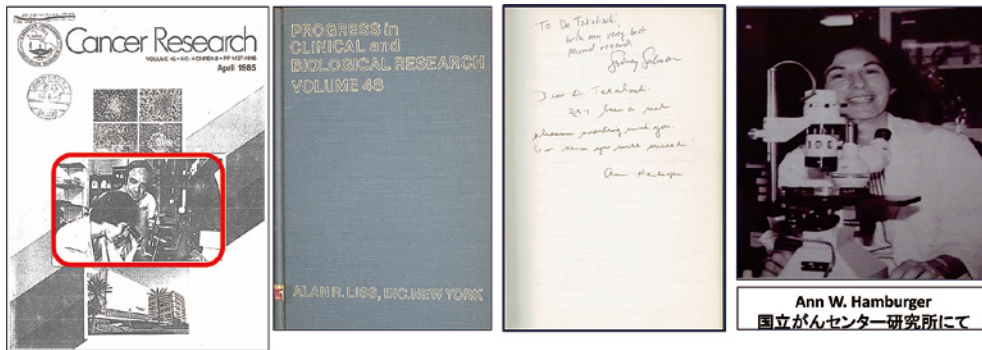 Cancer Research
April 1985
PROGRESS in
CLINICAL and
BIOLOGICAL RESEARCH
VOLUME 48
ALAN R. LISS, INC. NEW YORK
To Dr Takahashi
with my very best
personal regards,
Sydney Salmon
Dear Dr. Takahashi
It's been a real
pleasure working with you.
sure you will succeed!
Ann Hamburger
Ann W. Hamburger
国立がんセンター研究所にて